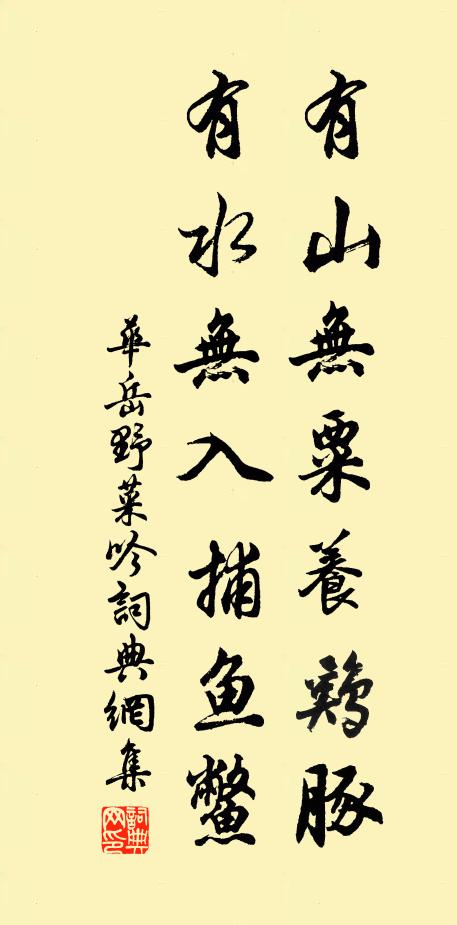 有山無粟養鷄豚
有水無入捕鱼鱉
華岳野菜吟詞典網集
詞典網印